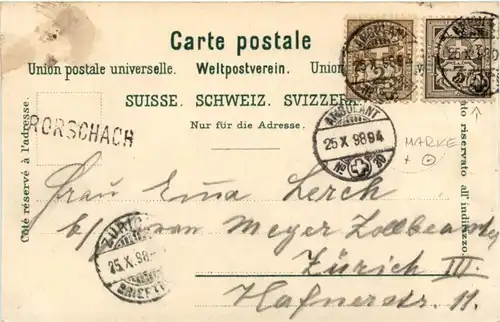 Carte postale
Union postale universelle. Weltpostverein. Union
SUISSE. SCHWEIZ. SVIZZERA.
Nur für die Adresse.
Côté réservé à l'adresse.
RORSCHACH
AMBULANT
25 X 98 94
No 10
MARKE
+
Frau Ema Lerch
b/ von Meyer Zollbeamter
Zürich III
Hafnerstr. 11.
ZÜRICH
25.X.98-
BRIEFTR
lato riservato all'indirizzo.